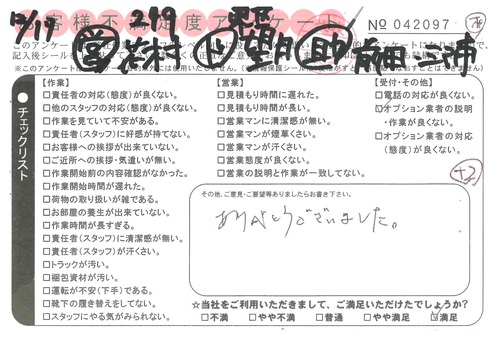 12/19 249
お客様不満足度アンケート
No 042097
営 若村 望月 助 南田 三浦
チェックリスト
【作業】
□責任者の対応(態度)が良くない。
□他のスタッフの対応(態度)が良くない。
□作業を見ていて不安がある。
□責任者(スタッフ)に好感が持てない。
□お客様への挨拶が出来ていない。
□ご近所への挨拶・気遣いが無い。
□作業開始前の内容確認がなかった。
□作業開始時間が遅れた。
□荷物の取り扱いが雑である。
□お部屋の養生が出来ていない。
□作業時間が長すぎる。
□責任者(スタッフ)に清潔感が無い。
□責任者(スタッフ)が汗くさい。
□トラックが汚い。
□梱包資材が汚い。
□運転が不安(下手)である。
□靴下の履き替えをしてない。
□スタッフにやる気がみられない。
【営業】
□見積もり時間に遅れた。
□見積もり時間が長い。
□営業マンに清潔感が無い。
□営業マンが煙草くさい。
□営業マンが汗くさい。
□営業態度が良くない。
□営業の説明と作業が一致してない。
【受付・その他】
□電話の対応が良くない。
□オプション業者の説明
・作業が良くない。
□オプション業者の対応
(態度)が良くない。
+2
その他、ご意見・ご要望等ありましたらお書き下さい。
ありがとうございました。
☆当社をご利用いただきまして、ご満足いただけたでしょうか?
□不満 □やや不満 □普通 □やや満足 ☑満足